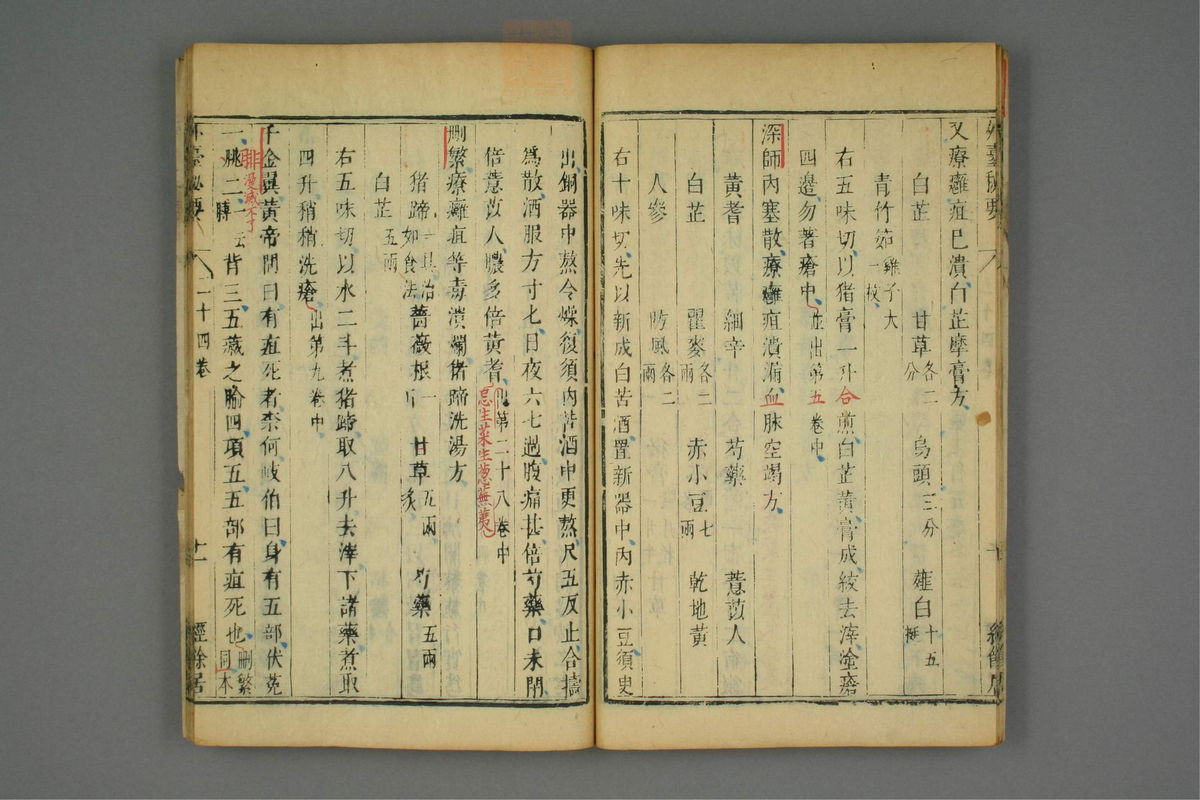 又療癰疽已潰白芷摩膏方
白芷 甘草各二分 烏頭三分 薤白十五挺
青竹茹雞子大一枚
右五味切以猪膏一升合煎白芷黄膏成絞去滓塗瘡
四邊勿著瘡中並出第五卷中
深師内塞散療癰疽潰漏血脉空竭方
黄耆 細辛 芍藥 薏苡人
白芷 瞿麥各二兩 赤小豆七兩 乾地黄
人參 防風各二兩
右十味切先以新成白苦酒置新器中内赤小豆須臾
出銅器中熬令燥復須内苦酒中更熬凡五反止合擣
爲散酒服方寸匕日夜六七過腹痛甚倍芍藥口未閉
倍薏苡人膿多倍黄耆出第二十八卷中
忌生菜生葱蕪荑
删繁療癰疽等毒潰爛猪蹄洗湯方
猪蹄一具治如食法 薔薇根一斤 甘草五兩炙 芍藥五兩
白芷五兩
右五味切以水二斗煮猪蹄取八升去滓下諸藥煮取
四升稍稍洗瘡出第九卷中
千金翼黄帝問曰有疽死者奈何岐伯曰身有五部伏菟
一腓二一云腨背三五藏之腧四項五五部有疽死也删繁同本
外臺秘要 二十四卷 十一 經餘居